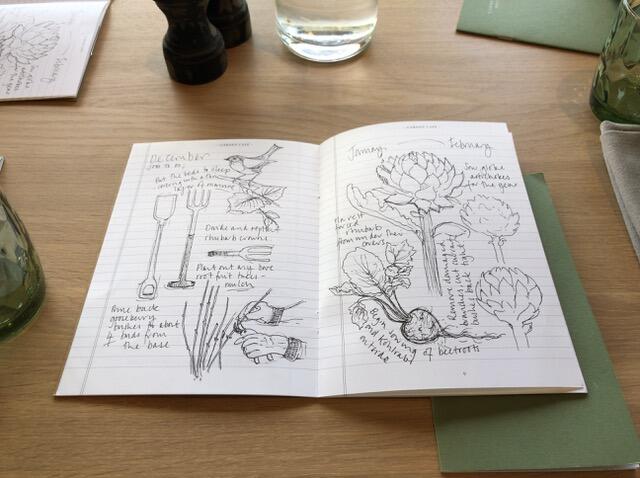 GARDEN CAFE
December
Jobs to do:
Put the beds to sleep
covering with a thick
layer of manure
Divide and replant
rhubarb crowns
Plant out any bare
root fruit trees -
mulch
Prune back
gooseberry
bushes to about
4 buds from
the base
GARDEN CAFE
January
February
Sow globe
artichokes
for the year
Harvest
forced
rhubarb
from under their
covers
Remove damaged
branches cut
bushes back
Begin sowing of beetroots
and kohlrabi
outside
9